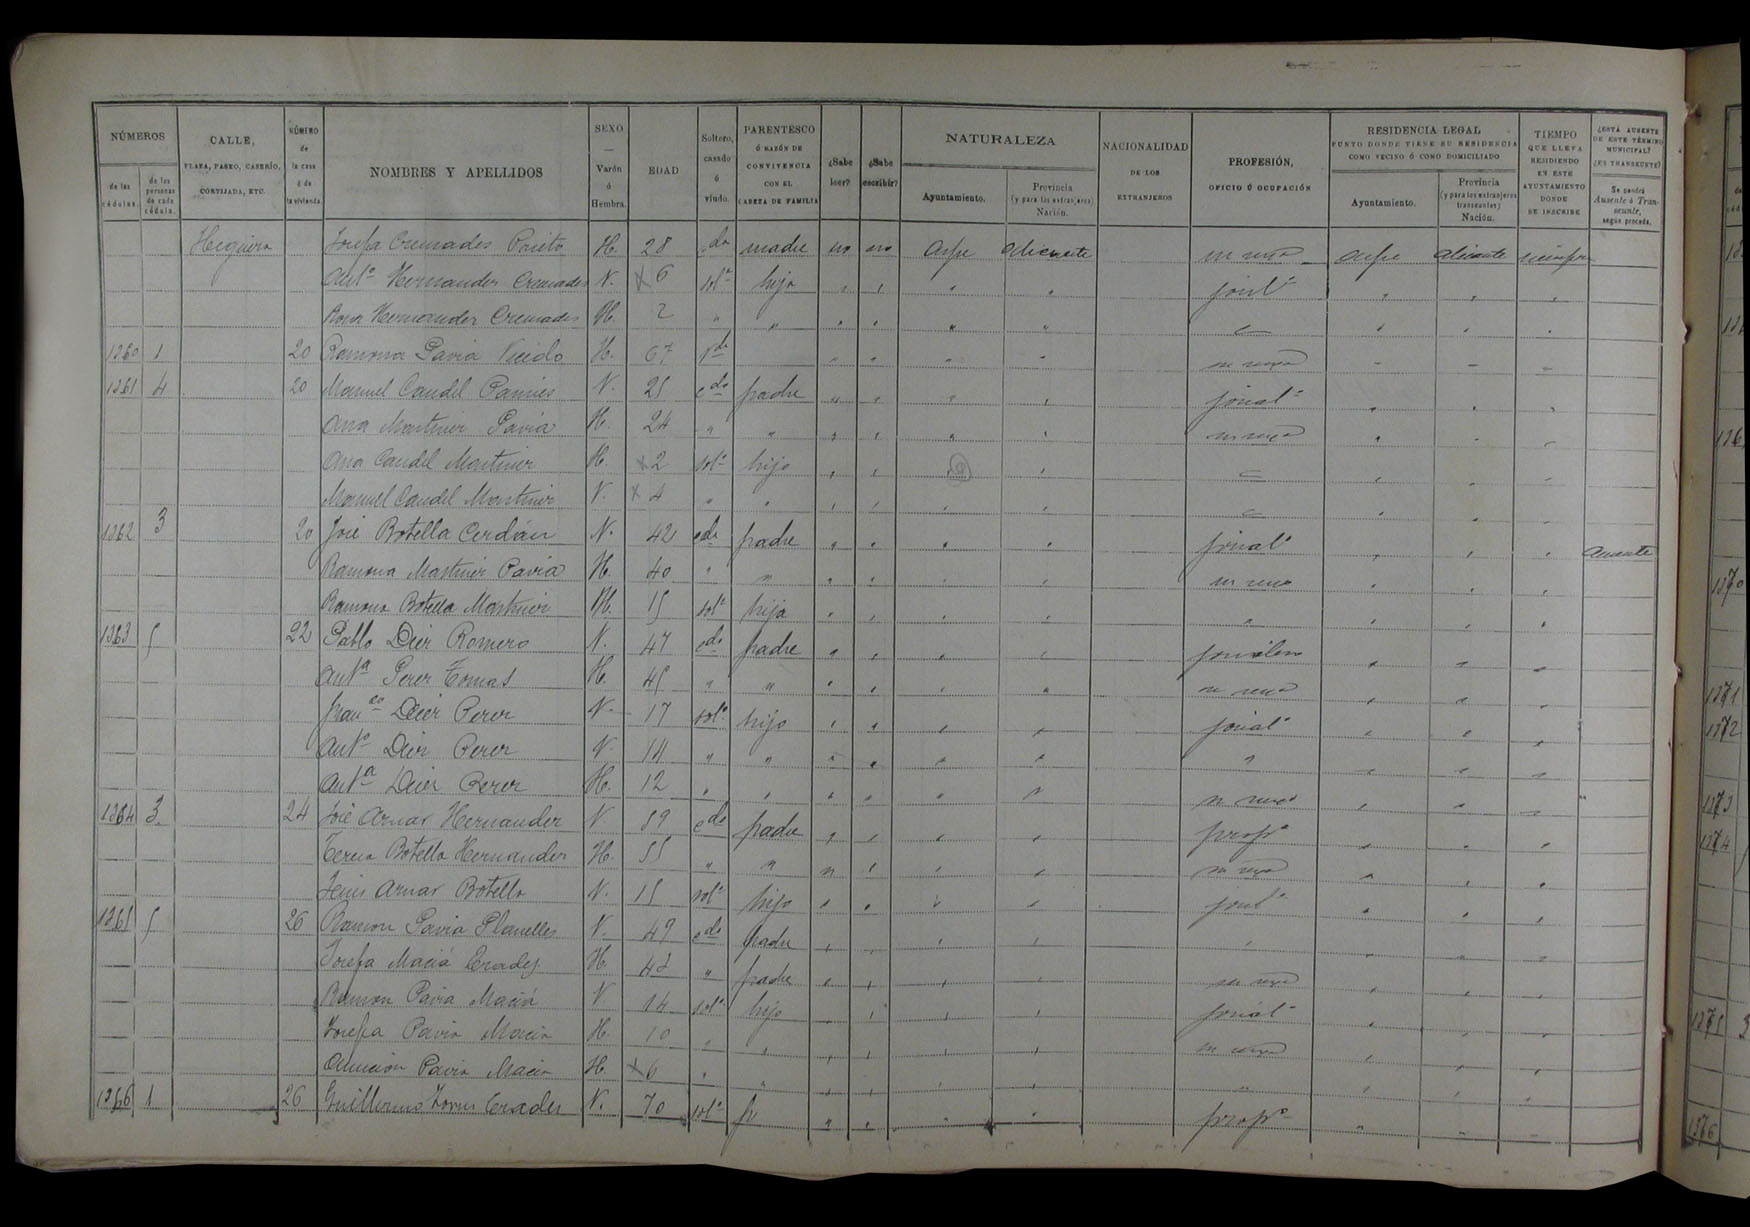 NÚMEROS
de las cédulas.
de las personas de cada cédula.
CALLE, PLAZA, PASEO, CASERÍO, CORTIJADA, ETC.
NÚMERO de la casa ó de la vivienda.
NOMBRES Y APELLIDOS
SEXO — Varón ó Hembra.
EDAD
Soltero, casado ó viudo.
PARENTESCO Ó RAZÓN DE CONVIVENCIA CON EL CABEZA DE FAMILIA
¿Sabe leer?
¿Sabe escribir?
NATURALEZA
Ayuntamiento.
Provincia (y para los extranjeros) Nación.
NACIONALIDAD DE LOS EXTRANJEROS
PROFESIÓN, OFICIO Ó OCUPACIÓN
RESIDENCIA LEGAL
PUNTO DONDE TIENE SU RESIDENCIA COMO VECINO Ó COMO DOMICILIADO
Ayuntamiento.
Provincia (y para los extranjeros transeuntes) Nación.
TIEMPO QUE LLEVA RESIDIENDO EN ESTE AYUNTAMIENTO DONDE SE INSCRIBE
¿ESTÁ AUSENTE DE ESTE TÉRMINO MUNICIPAL? ¿ES TRANSEUNTE?
Se pondrá Ausente ó Transeunte, según proceda.
Higuera Josefa Cremades Prieto H. 28 cda madre no no Aspe Alicante su sexo Aspe Alicante siempre
Antº Hernander Cremades V. x 6 solº hijo " " " " jornlº " " "
Rosa Hernander Cremades H. 2 " " " " " " " " " "
1360 1 20 Ramona Pavia Vicido H. 67 vda " " " " su sexo " " "
1361 4 20 Manuel Candel Pamies V. 25 cdo padre " " " " jornalº " " "
Ana Martiner Pavia H. 24 " " " " " " su sexo " " "
Ana Candel Martiner H. x 2 solº hijo " " " " " " " "
Manuel Candel Martiner V. x 4 " " " " " " " " " "
1362 3 20 José Botella Cerdán V. 42 cdo padre " " " " jornalº " " " ausente
Ramona Martiner Pavia H. 40 " " " " " " su sexo " " "
Ramona Botella Martiner H. 15 solº hija " " " " " " " "
1363 5 22 Pablo Dier Romero V. 47 cdo padre " " " " jornalero " " "
Antª Perer Tomas H. 45 " " " " " " su sexo " " "
Franco Dier Perer V. 17 solº hijo " " " " jornalº " " "
Antº Dier Perer V. 14 " " " " " " " " " "
Antª Dier Perer H. 12 " " " " " " su sexo " " "
1364 3 24 José Arnar Hernander V 59 cdo padre " " " " propº " " "
Teresa Botella Hernander H. 55 " " " " " " su sexo " " "
Jesus Arnar Botella V. 15 solº hijo " " " " jornlº " " "
1365 5 26 Ramon Pavia Planelles V. 49 cdo padre " " " " " " " "
Josefa Maciá Erades H. 43 " padre " " " " su sexo " " "
Ramon Pavia Maciá V. 14 solº hijo " " " " jornalº " " "
Josefa Pavia Macia H. 10 " " " " " " su sexo " " "
Asuncion Pavia Macia H. x 6 " " " " " " " " " "
1366 1 26 Guillermo Torres Erades V. 70 solº p " " " " propº " " "
1370
1371
1372
1373
1374
1375 3
1376